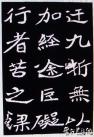 迁九折無以
加經途巨礙
行者苦之㷠